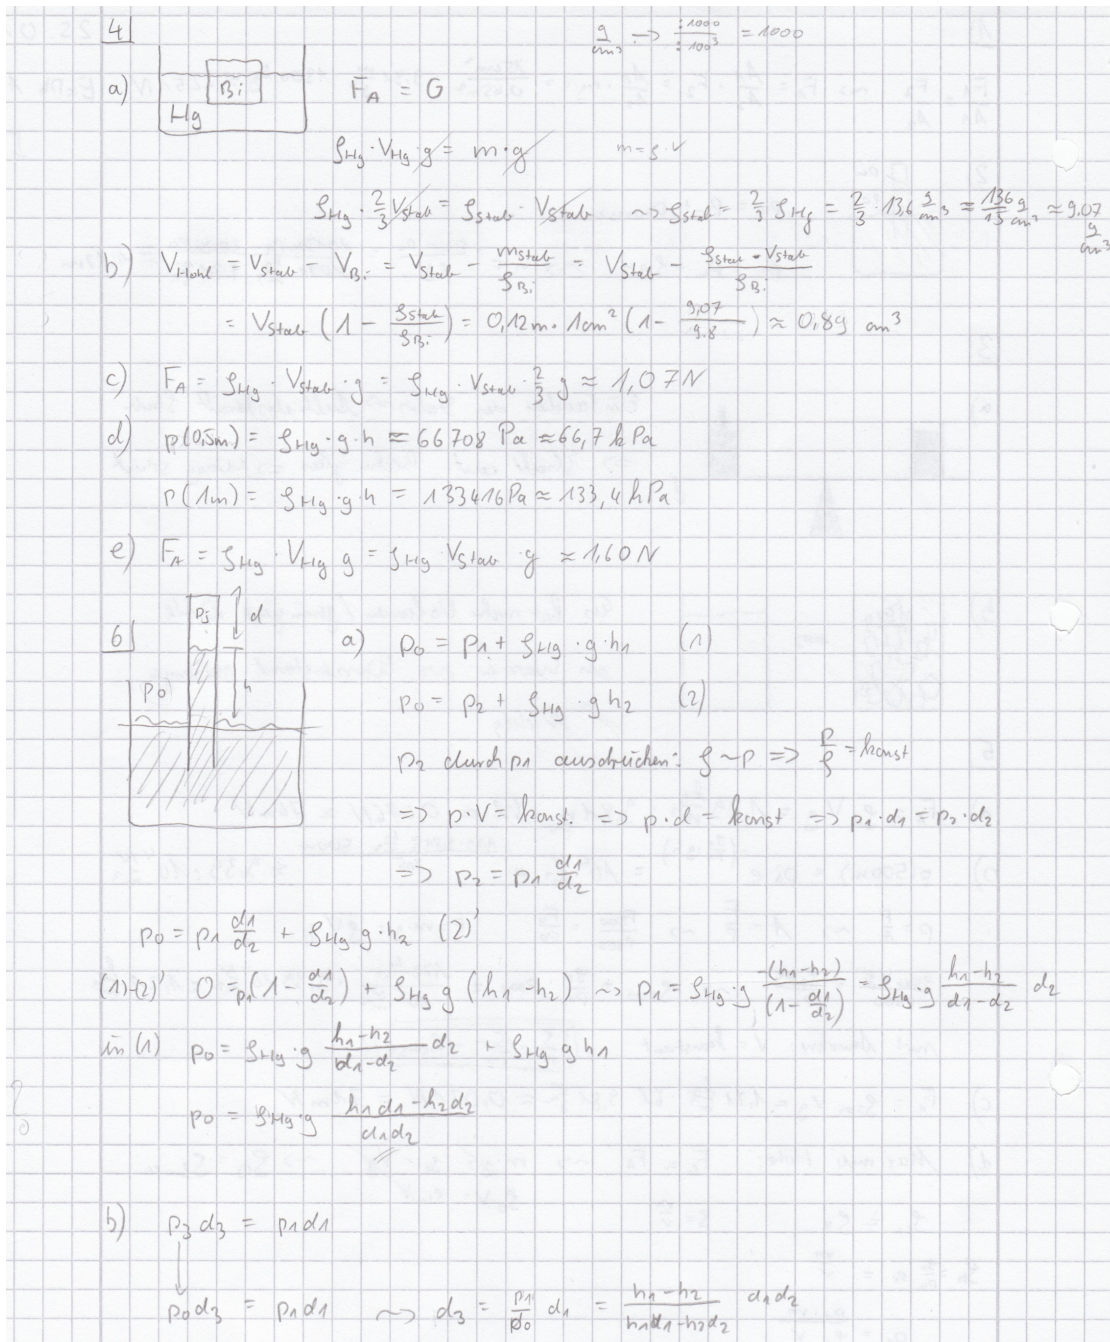 4
g/cm³ → :1000/:100³ = 1000
a) Bi Hg F_A = G
ρ_Hg · V_Hg · g = m · g m = ρ · V
ρ_Hg · 2/3 V_Stab = ρ_Stab · V_Stab ⇝ ρ_Stab = 2/3 ρ_Hg = 2/3 · 13,6 g/cm³ = 136/15 g/cm³ ≈ 9,07 g/cm³
b) V_Hohl = V_Stab − V_Bi = V_Stab − m_Stab/ρ_Bi = V_Stab − ρ_Stab · V_Stab/ρ_Bi
= V_Stab (1 − ρ_Stab/ρ_Bi) = 0,12m · 1cm² (1 − 9,07/9,8) ≈ 0,89 cm³
c) F_A = ρ_Hg · V_Stab · g = ρ_Hg · V_Stab · 2/3 g ≈ 1,07N
d) p(0,5m) = ρ_Hg · g · h ≈ 66708 Pa ≈ 66,7 kPa
p(1m) = ρ_Hg · g · h = 133416Pa ≈ 133,4 kPa
e) F_A = ρ_Hg · V_Hg g = ρ_Hg V_Stab · g ≈ 1,60N
6
pj d h p0
a) p0 = p1 + ρ_Hg · g · h1 (1)
p0 = p2 + ρ_Hg · g h2 (2)
p2 durch p1 ausdrücken: ρ ~ p => p/ρ = konst
=> p · V = konst. => p · d = konst => p1 · d1 = p2 · d2
=> p2 = p1 d1/d2
p0 = p1 d1/d2 + ρ_Hg g · h2 (2)'
(1)-(2)' 0 = p1(1 − d1/d2) + ρ_Hg g (h1 − h2) ⇝ p1 = ρ_Hg · g −(h1−h2)/(1−d1/d2) = ρ_Hg · g h1−h2/d1−d2 d2
in (1) p0 = ρ_Hg · g h1−h2/d1−d2 d2 + ρ_Hg g h1
p0 = ρ_Hg · g h1d1−h2d2/d1d2
b) p3 d3 = p1 d1
p0 d3 = p1 d1 ⇝ d3 = p1/p0 d1 = h1−h2/h1d1−h2d2 d1d2